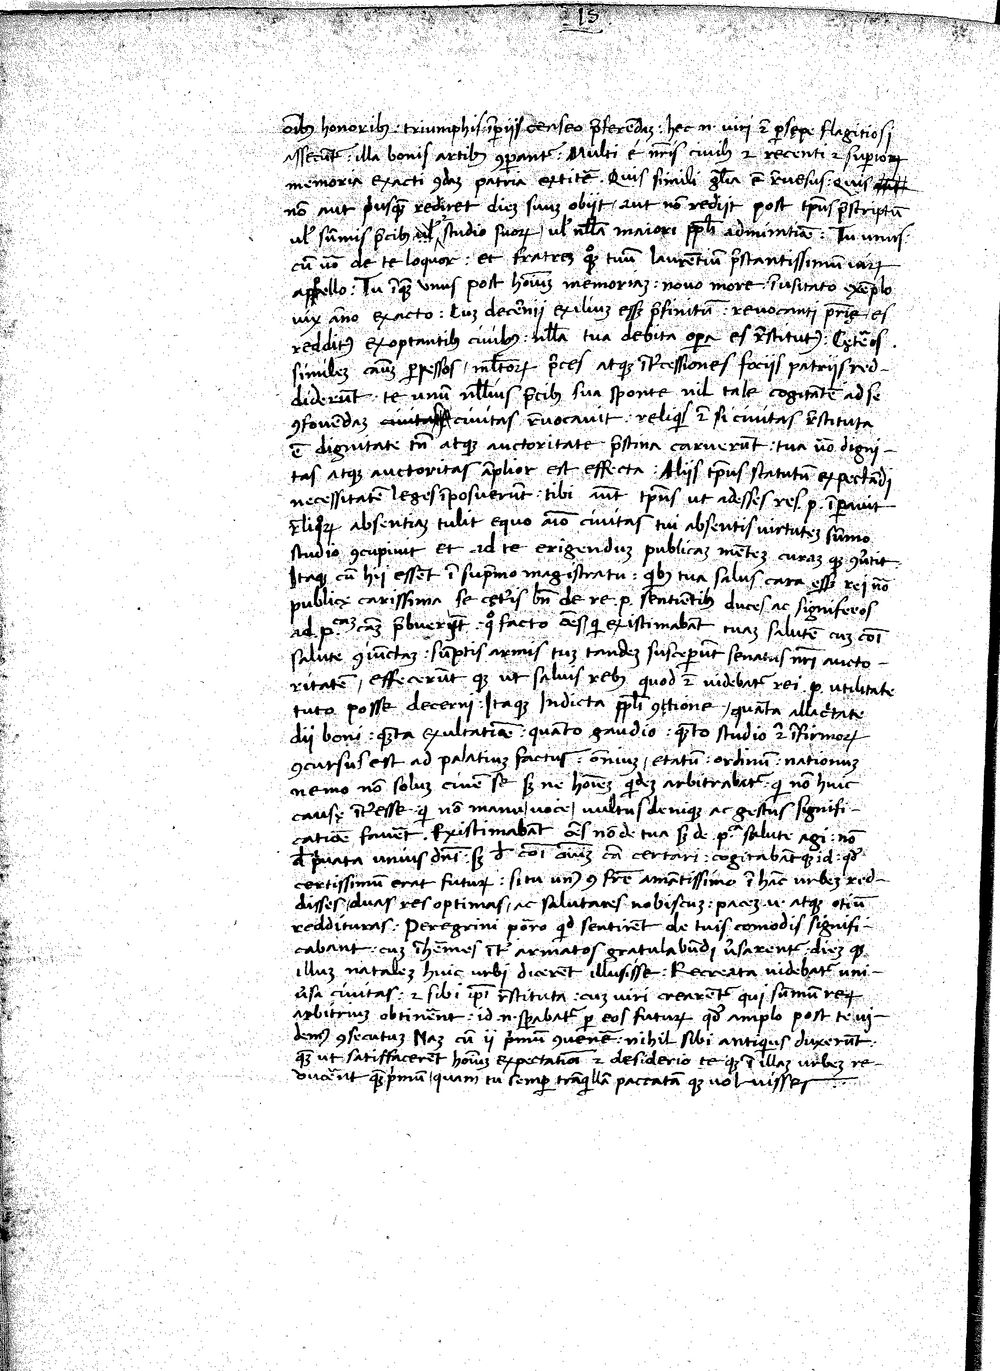 15
oībꝫ honoribꝫ · triumphis · īperijs censeo p̄ferendaꝫ : hec n· viri & persepe flagitiosi
assecūt : illa bonis artibꝫ ꝯperant᷑ : Multi é nr̄is civibꝫ & recenti & superiorꝝ
memoria exacti ꝗdaꝫ patria extitē Quis simili glīa ē reversus · quis
nō aut priusqꝫ rediret dieꝫ suuꝫ obijt, aut nō redijt post tp̄us p̄scriptū
ul᷑ sūmis p̄cibꝫ ul᷑ studio suorꝫ, ul᷑ nllā maiori ppl̄i admiratiōe : Tu unus
cū uō de te loquor : et fratreꝫ quoqꝫ tuū laurentiū p̄stantissimū uirꝫ
appello : Tu īquaꝫ unus post homīuꝫ memoriaꝫ : novo more īusitato exēplo
uix āno exacto : Cuꝫ decēnij exiliuꝫ esseꝫ p̄finitū : revocanti patrię es
redditꝰ exoptantibꝫ civibꝫ : nllā tua debita opera es r̄stitutꝰ : Cęterōs
similem cāuꝫ perpessos, mltorꝫ p̄ces atqꝫ īt᷑cessiones socijs patrijs red-
diderūt · te unū nllius p̄cibꝫ sua sponte nil tale cogitātē ad se
ꝯfovendaꝫ civitas revocavit · reliqui & si civitas r̄stituta
ē dignitate tn̄ atqꝫ auctoritate p̄stina caruerūt : tua uō digni-
tas atqꝫ auctoritas āplior est effecta : Alijs tp̄us statutū expectādi
necessitatē leges īposuerūt : tibi aut tp̄us ut adesses res · p · īperavit
reliquorꝫ absentiaꝫ tulit equo aīo civitas tui absentis virtuteꝫ sūmo
studio ꝯcupivit et ad te erigenduꝫ publicaꝫ mēteꝫ curaꝫ qꝫ ꝯvtit
Itaqꝫ cū hij essēt ī sup̄mo magistratu : qibꝫ tua salus cara esseꝫ rei uō
publicę carissima se cęt᷑is bn̄ de re · p · sentientibꝫ duces ac signiferos
ad · p · cāꝫ cāꝫ p̄buerūt : qͦ facto oēs qi existimabāt tuaꝫ salutē cuꝫ coī
salute ꝯiūctaꝫ : sūptis armis tuꝫ tandeꝫ susceperūt senatus nr̄i aucto-
ritatē, effecerūt qꝫ ut salvis rebꝫ quod & uidebat᷑ rei · p · utilitate
tuto posse decerni : Itaqꝫ Indicta ppl̄i ꝯtione, quāta allacritate
dii boni : quāta exultatiōe : quanto gaudio : quāto studio & īfirmorꝫ
ꝯcursus est ad palatiuꝫ factus : omniuꝫ, etatū : ordinū : nationuꝫ
nemo nō soluꝫ civē se sꝫ ne hoīeꝫ qideꝫ arbitrabat᷑ · qi nō huic
causę īt᷑esse : qi nō manu, voce, vultus deniqꝫ ac gestus signifi-
catiōe favēt · Existimabāt oēs nō de tua sꝫ de · p · salute agi : nō
d̄ privata unius dn̄i : sꝫ d̄ coī oīuꝫ cā certari : cogitabāt qꝫ id : qd̄
certissimū erat futurꝫ : si tu unꝰ ꝯ frē amātissimo ī hāc urbeꝫ red-
disses, duas res optimas, ac salutares nobiscuꝫ : paceꝫ · u · atqꝫ otiū
reddituras : Peregrini porro qid sentirēt de tuis comodis signifi-
cabant : cuꝫ īhermes īt᷑ armatos gratulabūdi v̄sarent᷑ : dieꝫ qꝫ
illuꝫ nataleꝫ huic urbi dicerēt illusisse : Recreata uidebat᷑ uni-
v̄sa civitas : & sibi ip̄i r̄stituta : cuꝫ viri crearent᷑ qui sūmū reꝝ
arbitriuꝫ obtinēnt : id · n · sperabat᷑ per eos futurꝫ qd̄ amplo post te ui-
demꝰ ꝯsecutuꝫ Naꝫ cū ii primū ꝯvenēre : nihil sibi antiquius duxerūt :
qꝫ ut satisfacerēt homīuꝫ expectatiōi & desiderio te qꝫ ī illaꝫ urbeꝫ re-
ducerēt quaꝫ primū, quam tu semper trāquillā paccatā qꝫ uoluisses